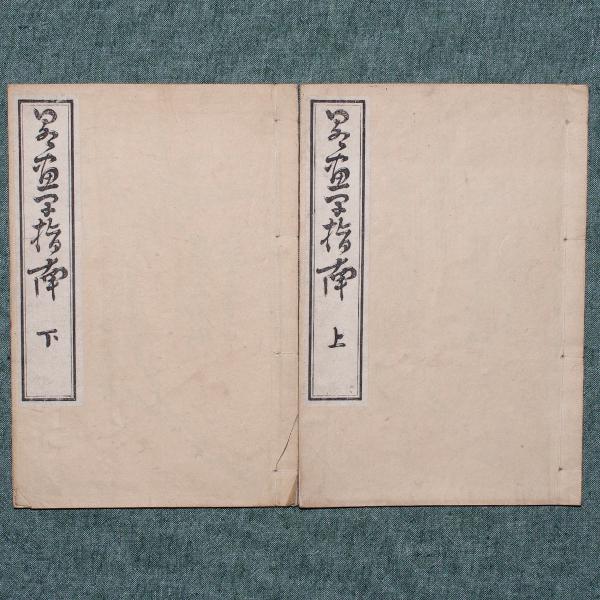 畧画早指南 上
畧画早指南 下